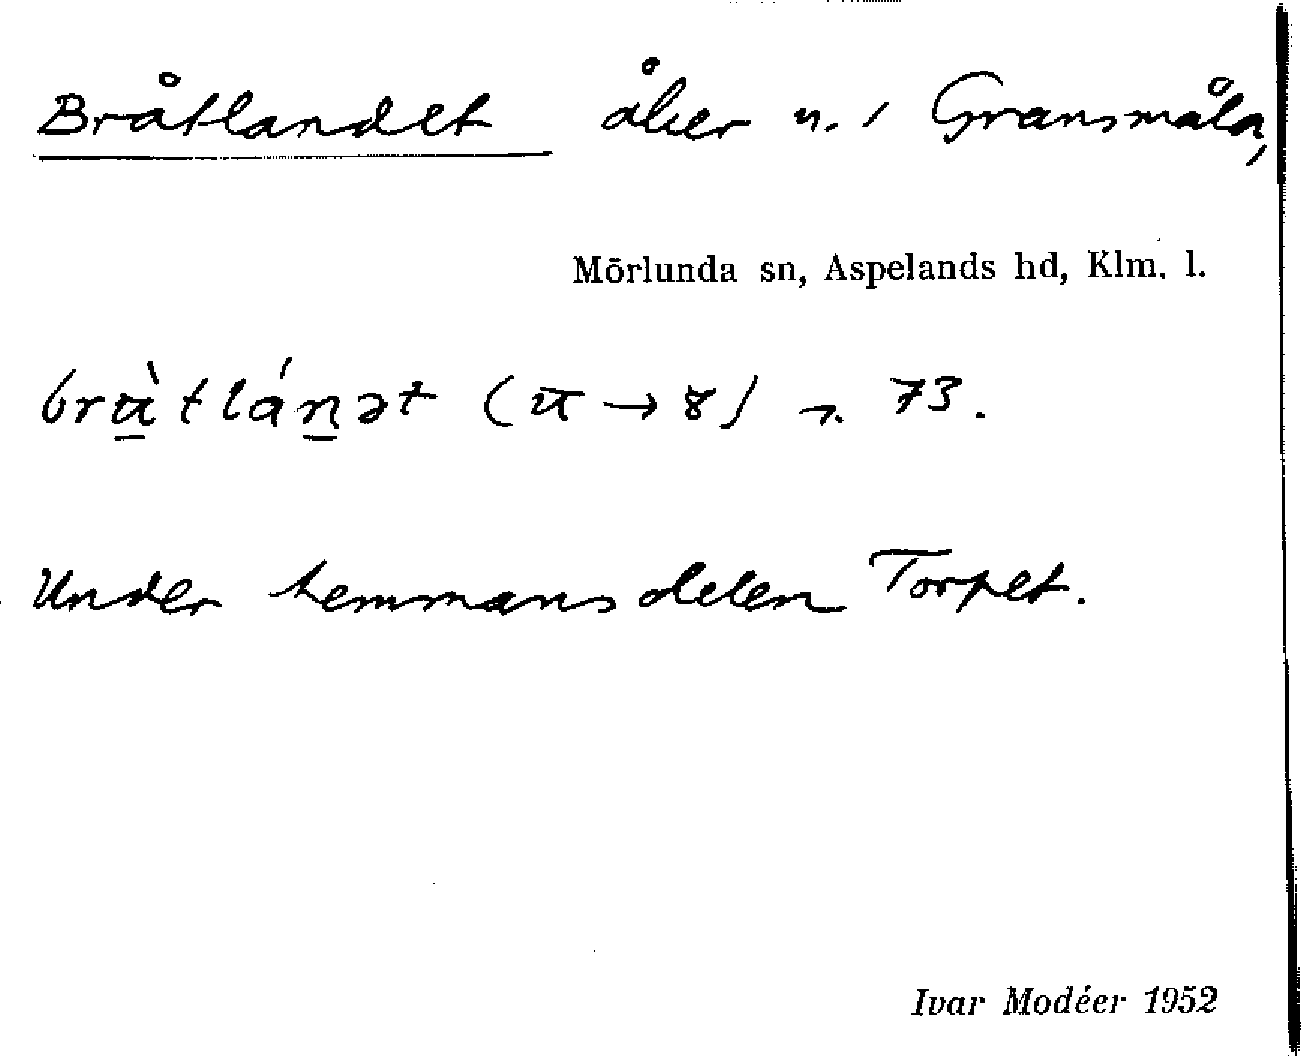 Bråtlandet åker n. i Gransmåla,
Mörlunda sn, Aspelands hd, Klm. l.
brа̀tlánət (ɑ → 8) 73.
Under hemmansdelen Torpet.
Ivar Modéer 1952